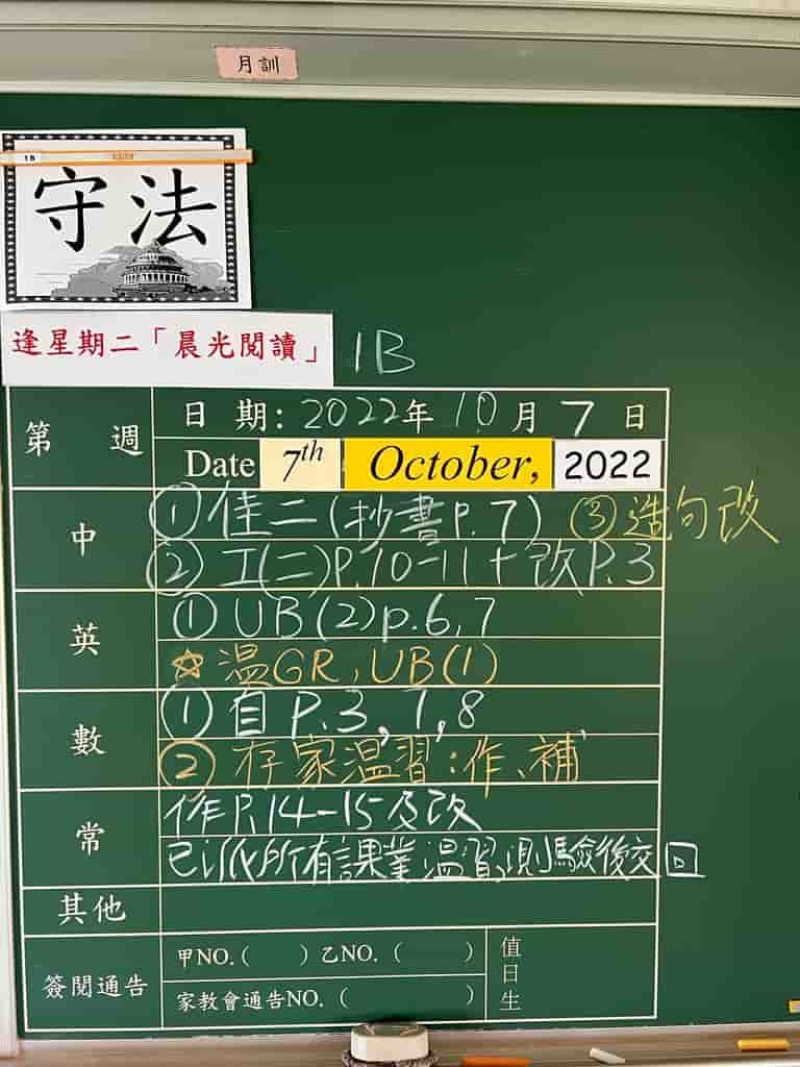 月訓
1B
守法
逢星期二「晨光閱讀」 1B
第 週
日 期: 2022年 10 月 7 日
Date 7th October, 2022
中
① 佳二(抄書P.7) ③造句改
② 工(二)P.10-11+改P.3
英
① UB(2)p.6,7
☆溫GR,UB(1)
數
① 自 P.3,7,8
② 存家溫習:作、補
常
作P.14-15及改
已派所有課業溫習,測驗後交回
其他
簽閱通告
甲NO.( ) 乙NO. ( )
家教會通告NO. ( )
值日生